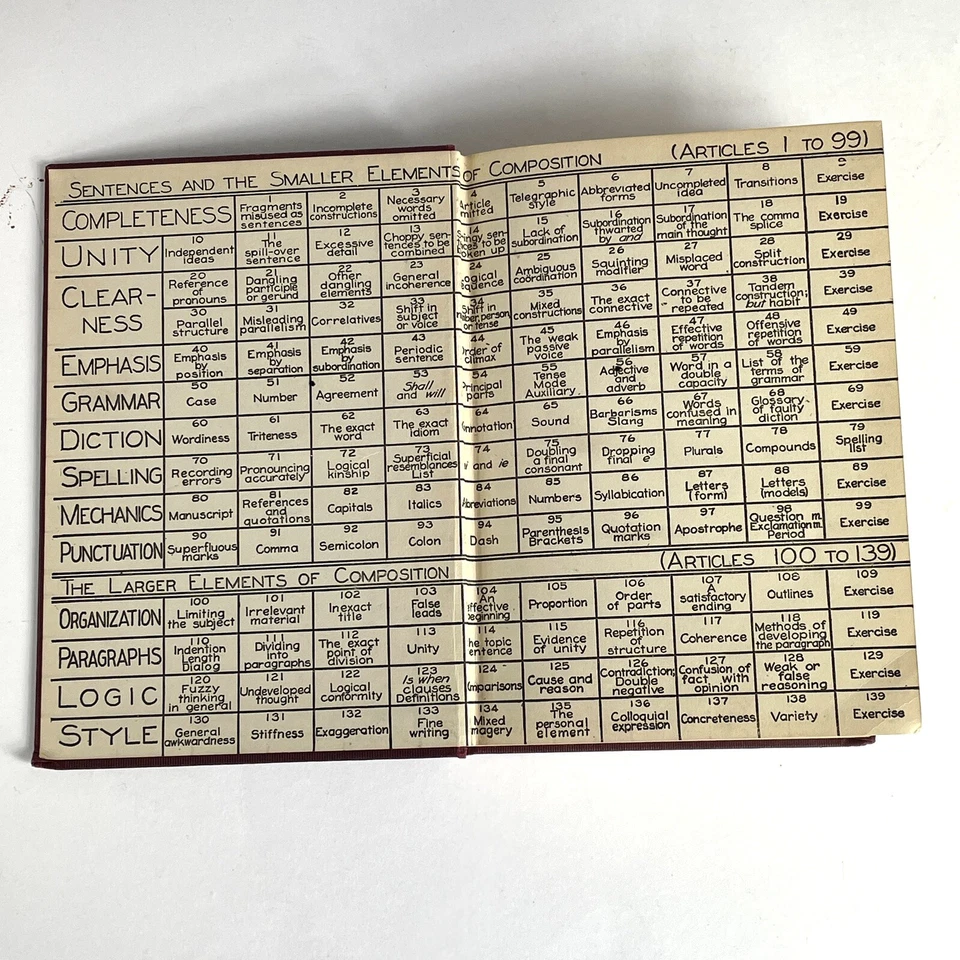 SENTENCES AND THE SMALLER ELEMENTS OF COMPOSITION (ARTICLES 1 TO 99)
COMPLETENESS
1
Fragments
misused as
sentences
2
Incomplete
constructions
3
Necessary
words
omitted
4
Article
5
Telegraphic
style
6
Abbreviated
forms
7
Uncompleted
idea
8
Transitions
9
Exercise
UNITY
10
Independent
ideas
11
The
spill-over
sentence
12
Excessive
detail
13
Choppy sen-
tences to be
combined
14
15
Lack of
subordination
16
Subordination
thwarted
by and
17
Subordination
of the
main thought
18
The comma
splice
19
Exercise
CLEAR-
NESS
20
Reference
of
pronouns
21
Dangling
participle
or gerund
22
Other
dangling
elements
23
General
incoherence
24
25
Ambiguous
coordination
26
Squinting
modifier
27
Misplaced
word
28
Split
construction
29
Exercise
30
Parallel
structure
31
Misleading
parallelism
32
Correlatives
33
Shift in
subject
or voice
34
Shift in
person
or tense
35
Mixed
constructions
36
The exact
connective
37
Connective
to be
repeated
38
Tandem
construction;
but habit
39
Exercise
EMPHASIS
40
Emphasis
by
position
41
Emphasis
by
separation
42
Emphasis
by
subordination
43
Periodic
sentence
44
Order of
climax
45
The weak
passive
voice
46
Emphasis
by
parallelism
47
Effective
repetition
of words
48
Offensive
repetition
of words
49
Exercise
GRAMMAR
50
Case
51
Number
52
Agreement
53
Shall
and will
54
parts
55
Tense
Mode
Auxiliary
56
Adjective
and
adverb
57
Word in a
double
capacity
58
List of the
terms of
grammar
59
Exercise
DICTION
60
Wordiness
61
Triteness
62
The exact
word
63
The exact
idiom
64
65
Sound
66
Barbarisms
Slang
67
Words
confused in
meaning
68
Glossary
of faulty
diction
69
Exercise
SPELLING
70
Recording
errors
71
Pronouncing
accurately
72
Logical
kinship
73
Superficial
resemblances
List
74
and ie
75
Doubling
a final
consonant
76
Dropping
final e
77
Plurals
78
Compounds
79
Spelling
list
MECHANICS
80
Manuscript
81
References
and
quotations
82
Capitals
83
Italics
84
85
Numbers
86
Syllabication
87
Letters
(form)
88
Letters
(models)
89
Exercise
PUNCTUATION
90
Superfluous
marks
91
Comma
92
Semicolon
93
Colon
94
Dash
95
Parenthesis
Brackets
96
Quotation
marks
97
Apostrophe
98
Question m.
Exclamation m.
Period
99
Exercise
THE LARGER ELEMENTS OF COMPOSITION (ARTICLES 100 TO 139)
ORGANIZATION
100
Limiting
the subject
101
Irrelevant
material
102
Inexact
title
103
False
leads
104
An
effective
beginning
105
Proportion
106
Order
of parts
107
A
satisfactory
ending
108
Outlines
109
Exercise
PARAGRAPHS
110
Indention
Length
Dialog
111
Dividing
into
paragraphs
112
The exact
point of
division
113
Unity
114
topic
115
Evidence
of unity
116
Repetition
of
structure
117
Coherence
118
Methods of
developing
the paragraph
119
Exercise
LOGIC
120
Fuzzy
thinking
in general
121
Undeveloped
thought
122
Logical
conformity
123
Is when
clauses
Definitions
124
125
Cause and
reason
126
Contradiction;
Double
negative
127
Confusion of
fact with
opinion
128
Weak or
false
reasoning
129
Exercise
STYLE
130
General
awkwardness
131
Stiffness
132
Exaggeration
133
Fine
writing
134
Mixed
135
The
personal
element
136
Colloquial
expression
137
Concreteness
138
Variety
139
Exercise